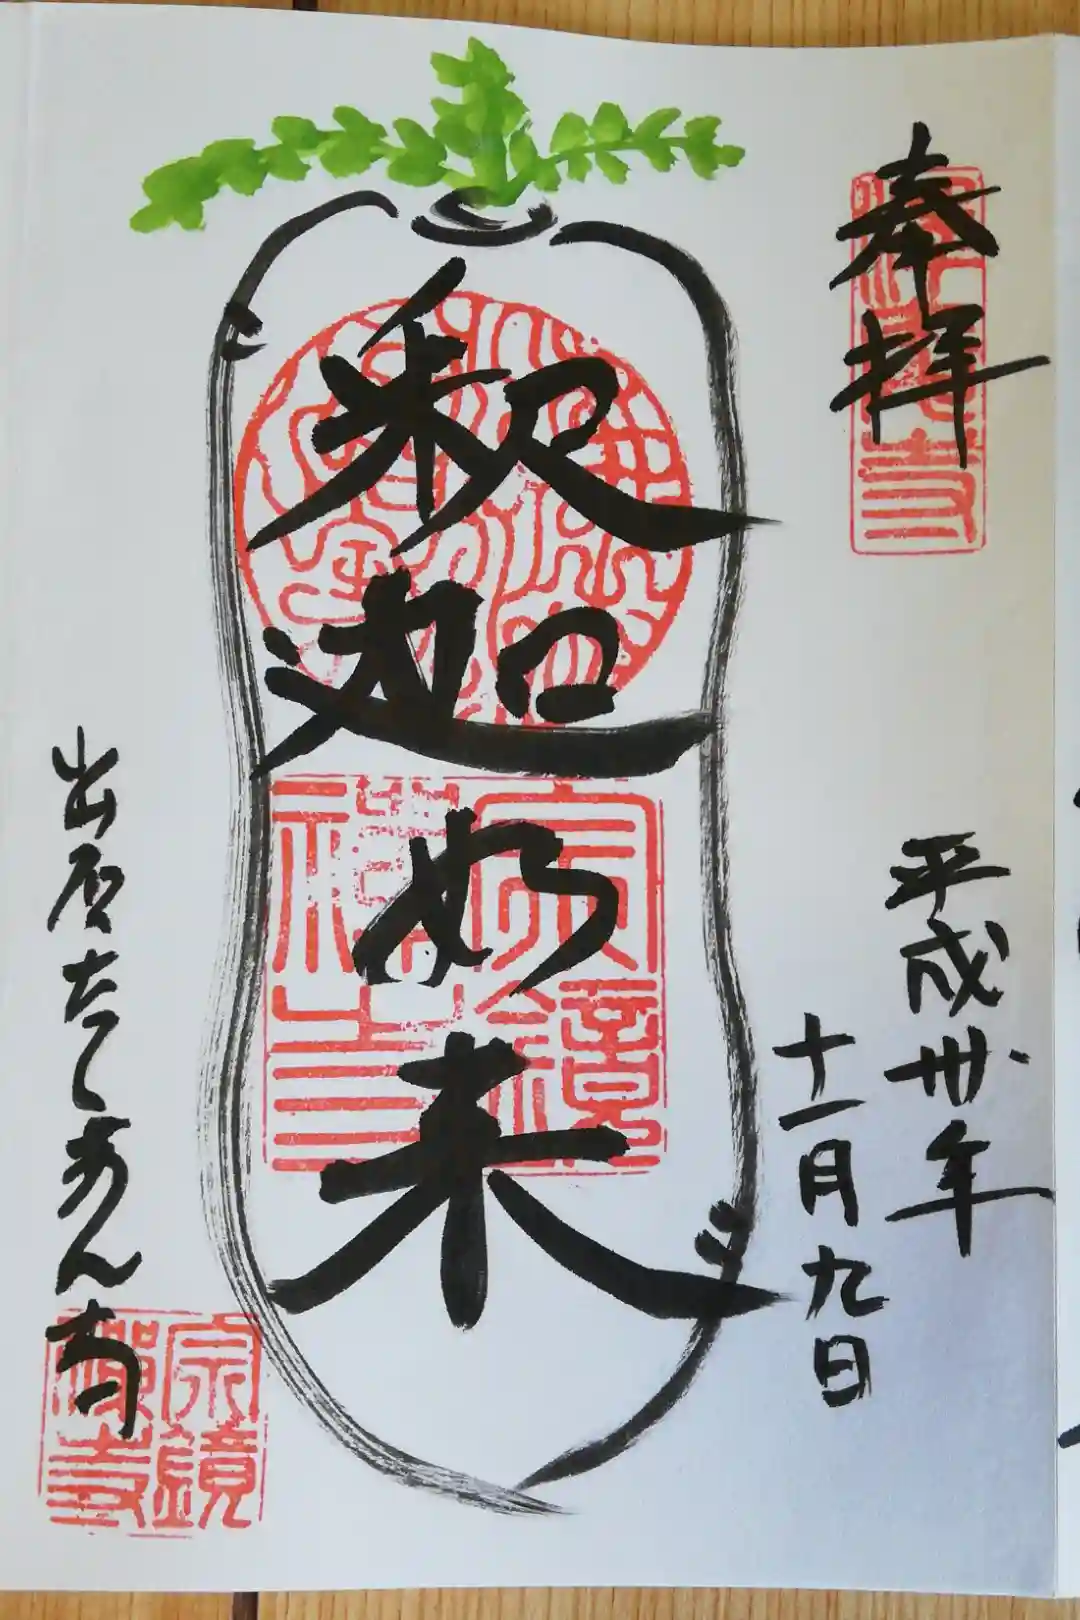 奉拝
平成卅年
十一月九日
釈迦如来
出石たくあん寺
宗鏡禅寺
宗鏡禅寺